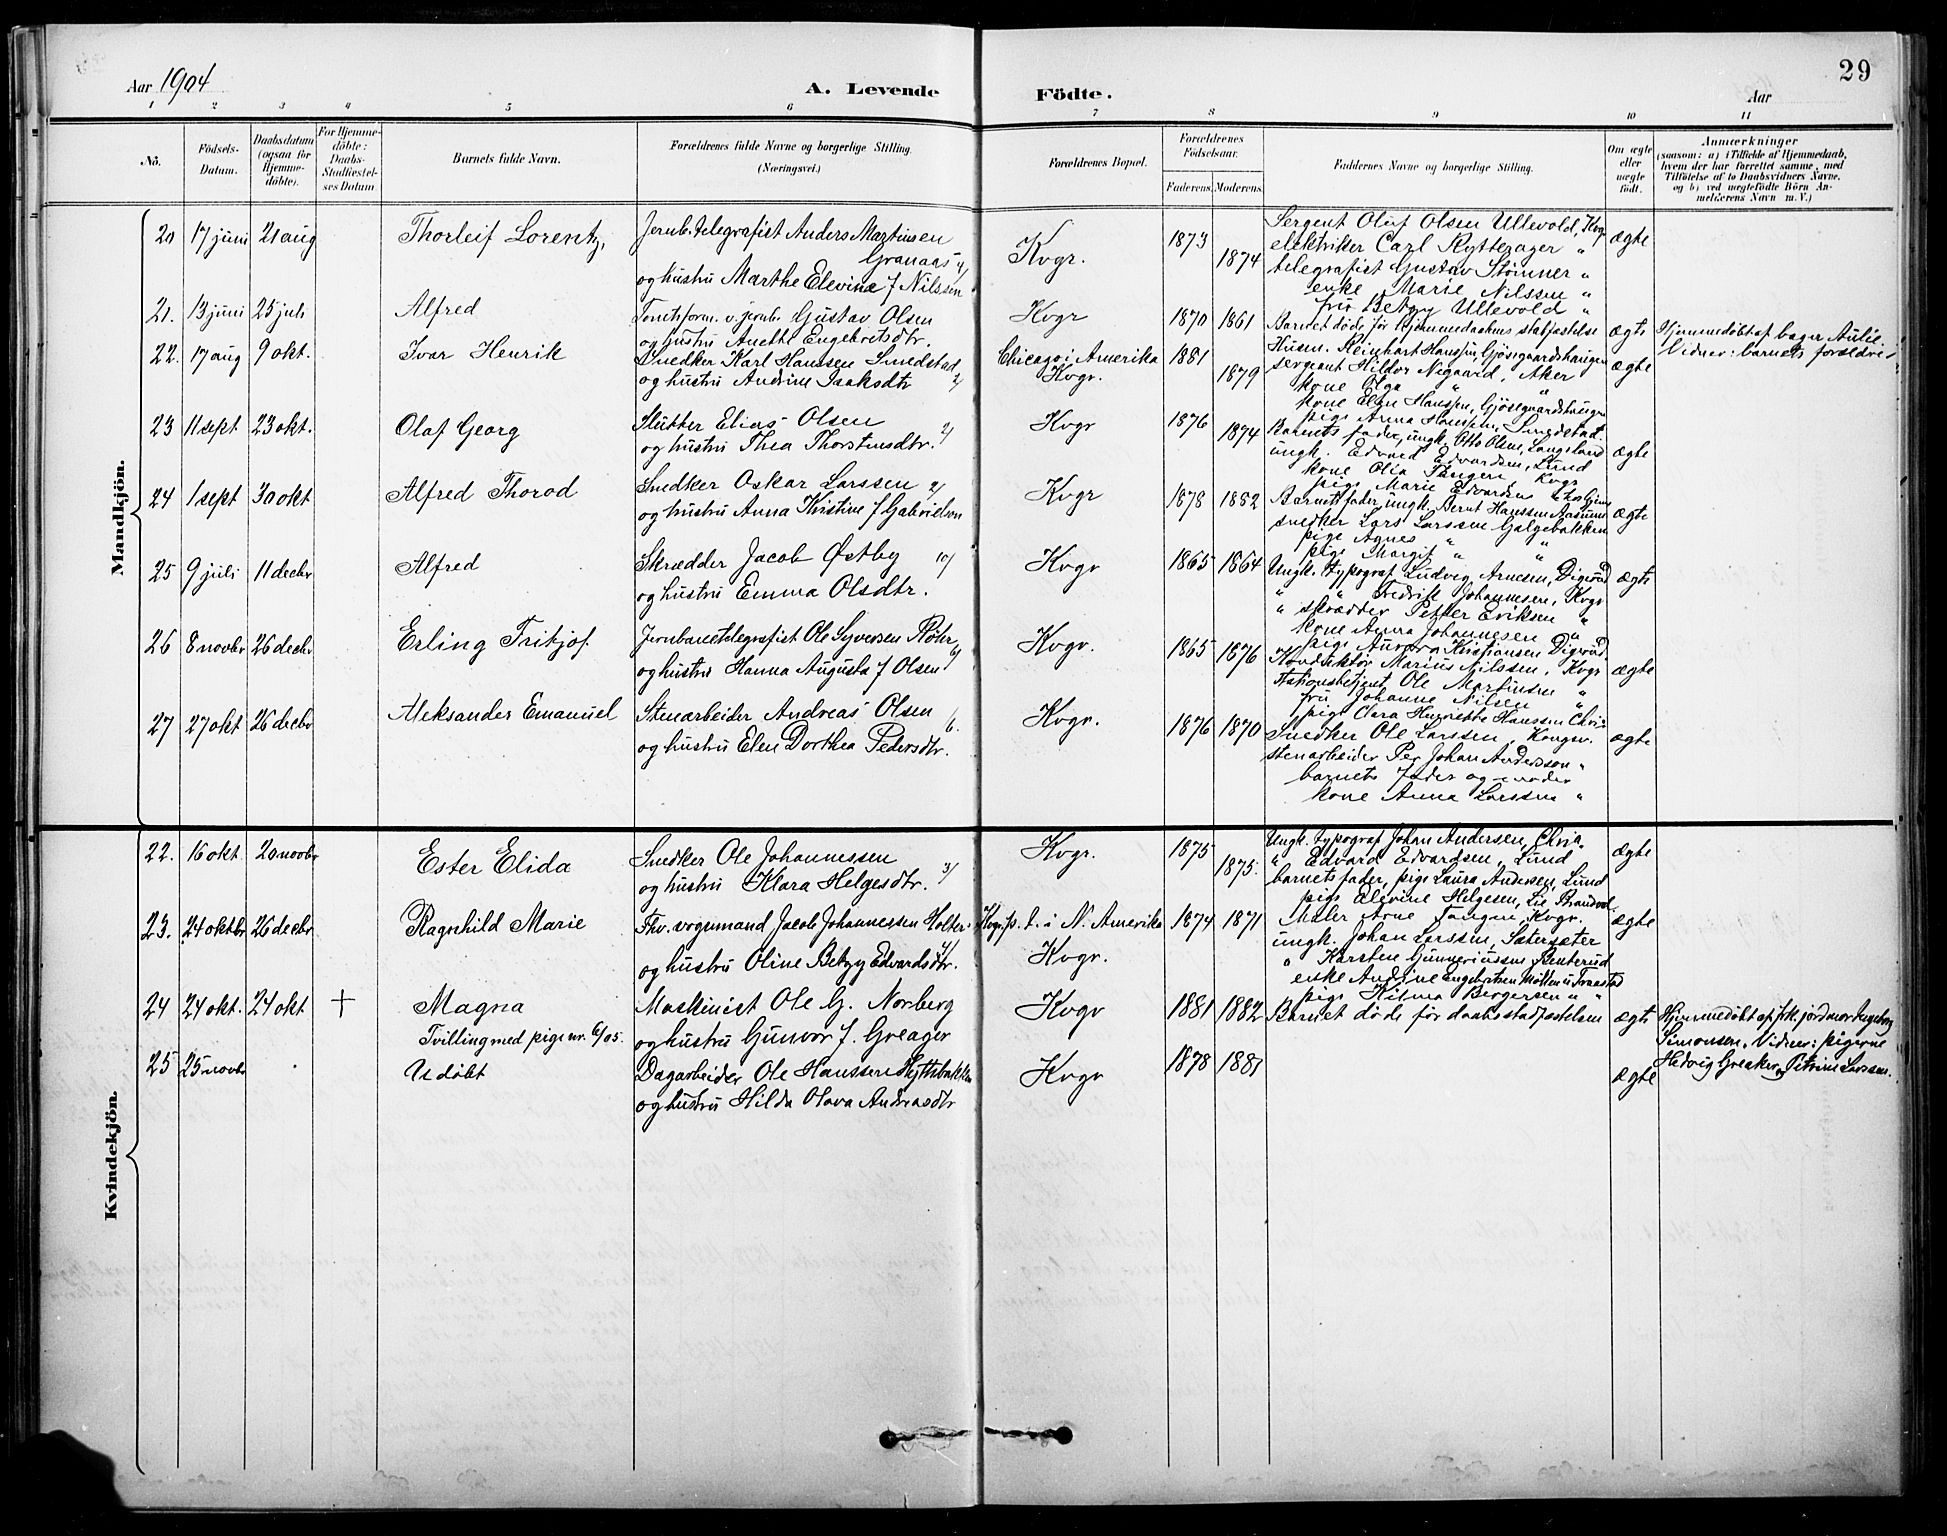 Aar 1904
A. Levende Födte.
29
Aar
1 2 3 4 5 6 7 8 9 10 11
No.
Födsels-Datum.
Daabsdatum (ogsaa for Hjemme-döbte).
For Hjemme-döbte: Daabs-Stadfæstel-ses Datum
Barnets fulde Navn.
Forældrenes fulde Navne og borgerlige Stilling. (Næringsvei.)
Forældrenes Bopæl.
Forældrenes Födselsaar.
Faderens. Moderens.
Faddernes Navne og borgerlige Stilling.
Om ægte eller uægte födt.
Anmærkninger
(saasom: a) i Tilfælde af Hjemmedaab,
hvem der har forrettet samme, med
Tilföielse af to Daabsvidners Navne,
og b) ved uægtefödte Börn An-
melderens Navn m. V.)
Mandkjön.
20 17 juni 21 aug Thorleif Lorentz, Jernb. telegrafist Anders Martinsen
Granaas
og hustru Marthe Elevine f Nilssen
Kvgr. 1873 1874
Sergent Oluf Olsen Ullevold,
elektriker Carl Rytterager "
telegrafist Gustav Stömner "
enke Marie Nilssen "
fru Betzy Ullevold "
ægte
21. 13 juni 25 juli Alfred
Tomteform. v. jernb. Gustav Olsen
og hustru Anette Engebretsdtr.
Kvgr 1870 1861
Barnet döde för hjemmedaabens stafæstelse
ægte
Hjemmedöbt af bager Aulie.
Vidner: barnets forældre
22. 17 aug 9 okt. Ivar Henrik
Snedker Karl Hanssen Smedstad
og hustru Andrine Isaksdtr
Chicago i Amerika
Kvgr.
1881 1879
Husm. Reinhart Hanssen, Gjösegaardshaugen
sergeant Hildor Negaard, Aker
kone Olga " "
kone Elen Hanssen, Gjösegaardshaugen
pige Anna Hanssen, Smedstad.
ægte
23 11 sept 23 okt. Olaf Georg
Slutter Elias Olsen
og hustru Thea Thorstensdtr.
Kvgr 1876 1874
Barnets fader, ungk. Otto Olsen, Langeland
ungk. Edvard Edvardsen, Lund
kone Olia Tangen, Kvgr
pige Marie Edvardsen
ægte
24 1 sept 30 okt Alfred Thorod
Snedker Oskar Larssen
og hustru Anna Kristine f Gabrielsen
Kvgr 1878 1882
Barnets fader, ungk. Bernt Hanssen Aasum
snedker Lars Larssen Galgebakken
pige Agnes " "
pige Margit " "
ægte
25 9 juli 11 decbr Alfred
Skrædder Jacob Østby
og hustru Emma Olsdtr.
Kvgr 1865 1864
Ungk. typograf Ludvig Arnesen, Digerud
" " Fredrik Johannesen, Kvgr
" skrædder Petter Eriksen "
kone Anna Johannesen "
pige Aurora Kristiansen Digerud.
ægte
26 8 novbr 26 decbr Erling Fritjof
Jernbanetelegrafist Ole Syversen Röhr
og hustru Hanna Augusta f Olsen
Kvgr. 1865 1876
Konduktör Marius Nilssen, Kvgr
Stationsbetjent Ole Martinsen "
fru Johanne Nilsen "
pige Clara Henriette Hanssen Chria
ægte
27 27 okt 26 decbr Aleksander Emanuel
Stenarbeider Andreas Olsen
og hustru Elen Dorthea Pedersdtr.
Kvgr. 1876 1870
Snedker Ole Larssen, Kongsv.
stenarbeider Per Johan Andersson "
barnets fader og moder
kone Anna Larssen "
ægte
Kvindekjön.
22. 16 okt. 20 novbr Ester Elida
Snedker Ole Johannessen
og hustru Klara Helgesdtr.
Kvgr. 1875 1875.
Ungk. typograf Johan Andersen, Chria.
" Edvard Edvardsen, Lund
barnets fader, pige Laura Andersen, Lund
pige Elevine Helgesen, Lie Brandval
ægte
23. 24 oktbr 26 decbr Ragnhild Marie
Fhv. vognmand Jacob Johannessen Holter
og hustru Oline Betzy Edvardsdtr.
Kvgr. p. t. i N. Amerika
Kvgr.
1874 1871
Maler Arne Tangen, Kvgr.
ungk. Johan Larssen, Sætersæter
" Karsten Gunneriussen Benterud
enke Andrine Engebretsen
pige Hilma Bergersen " "
ægte
24 24 okt. 24 okt † Magna
Tvilling med pige nr. 6/05.
Maskinist Ole G. Norberg
og hustru Gunvor f. Greager
Kvgr 1881 1882
Barnet döde för daabsstadfæstelsen
ægte
Hjemmedöbt af frk. jordmor Ingeborg
Simonsen, Vidner: pigerne
Hedvig Greaker, Petrine Larssen.
25 25 novbr Udöbt
Dagarbeider Ole Hanssen Flytsbakken
og hustru Hilda Olava Andreasdtr
Kvgr 1878 1881 ægte